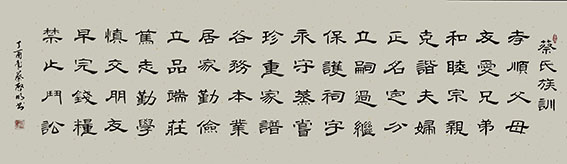 蔡氏族訓
孝順父母
友愛兄弟
和睦宗親
克諧夫婦
正名定分
立嗣過繼
保護祠宇
永守蒸嘗
珍重家譜
各務本業
居家勤儉
立品端莊
篤志勤學
慎交朋友
早完錢糧
禁止鬥訟
丁酉